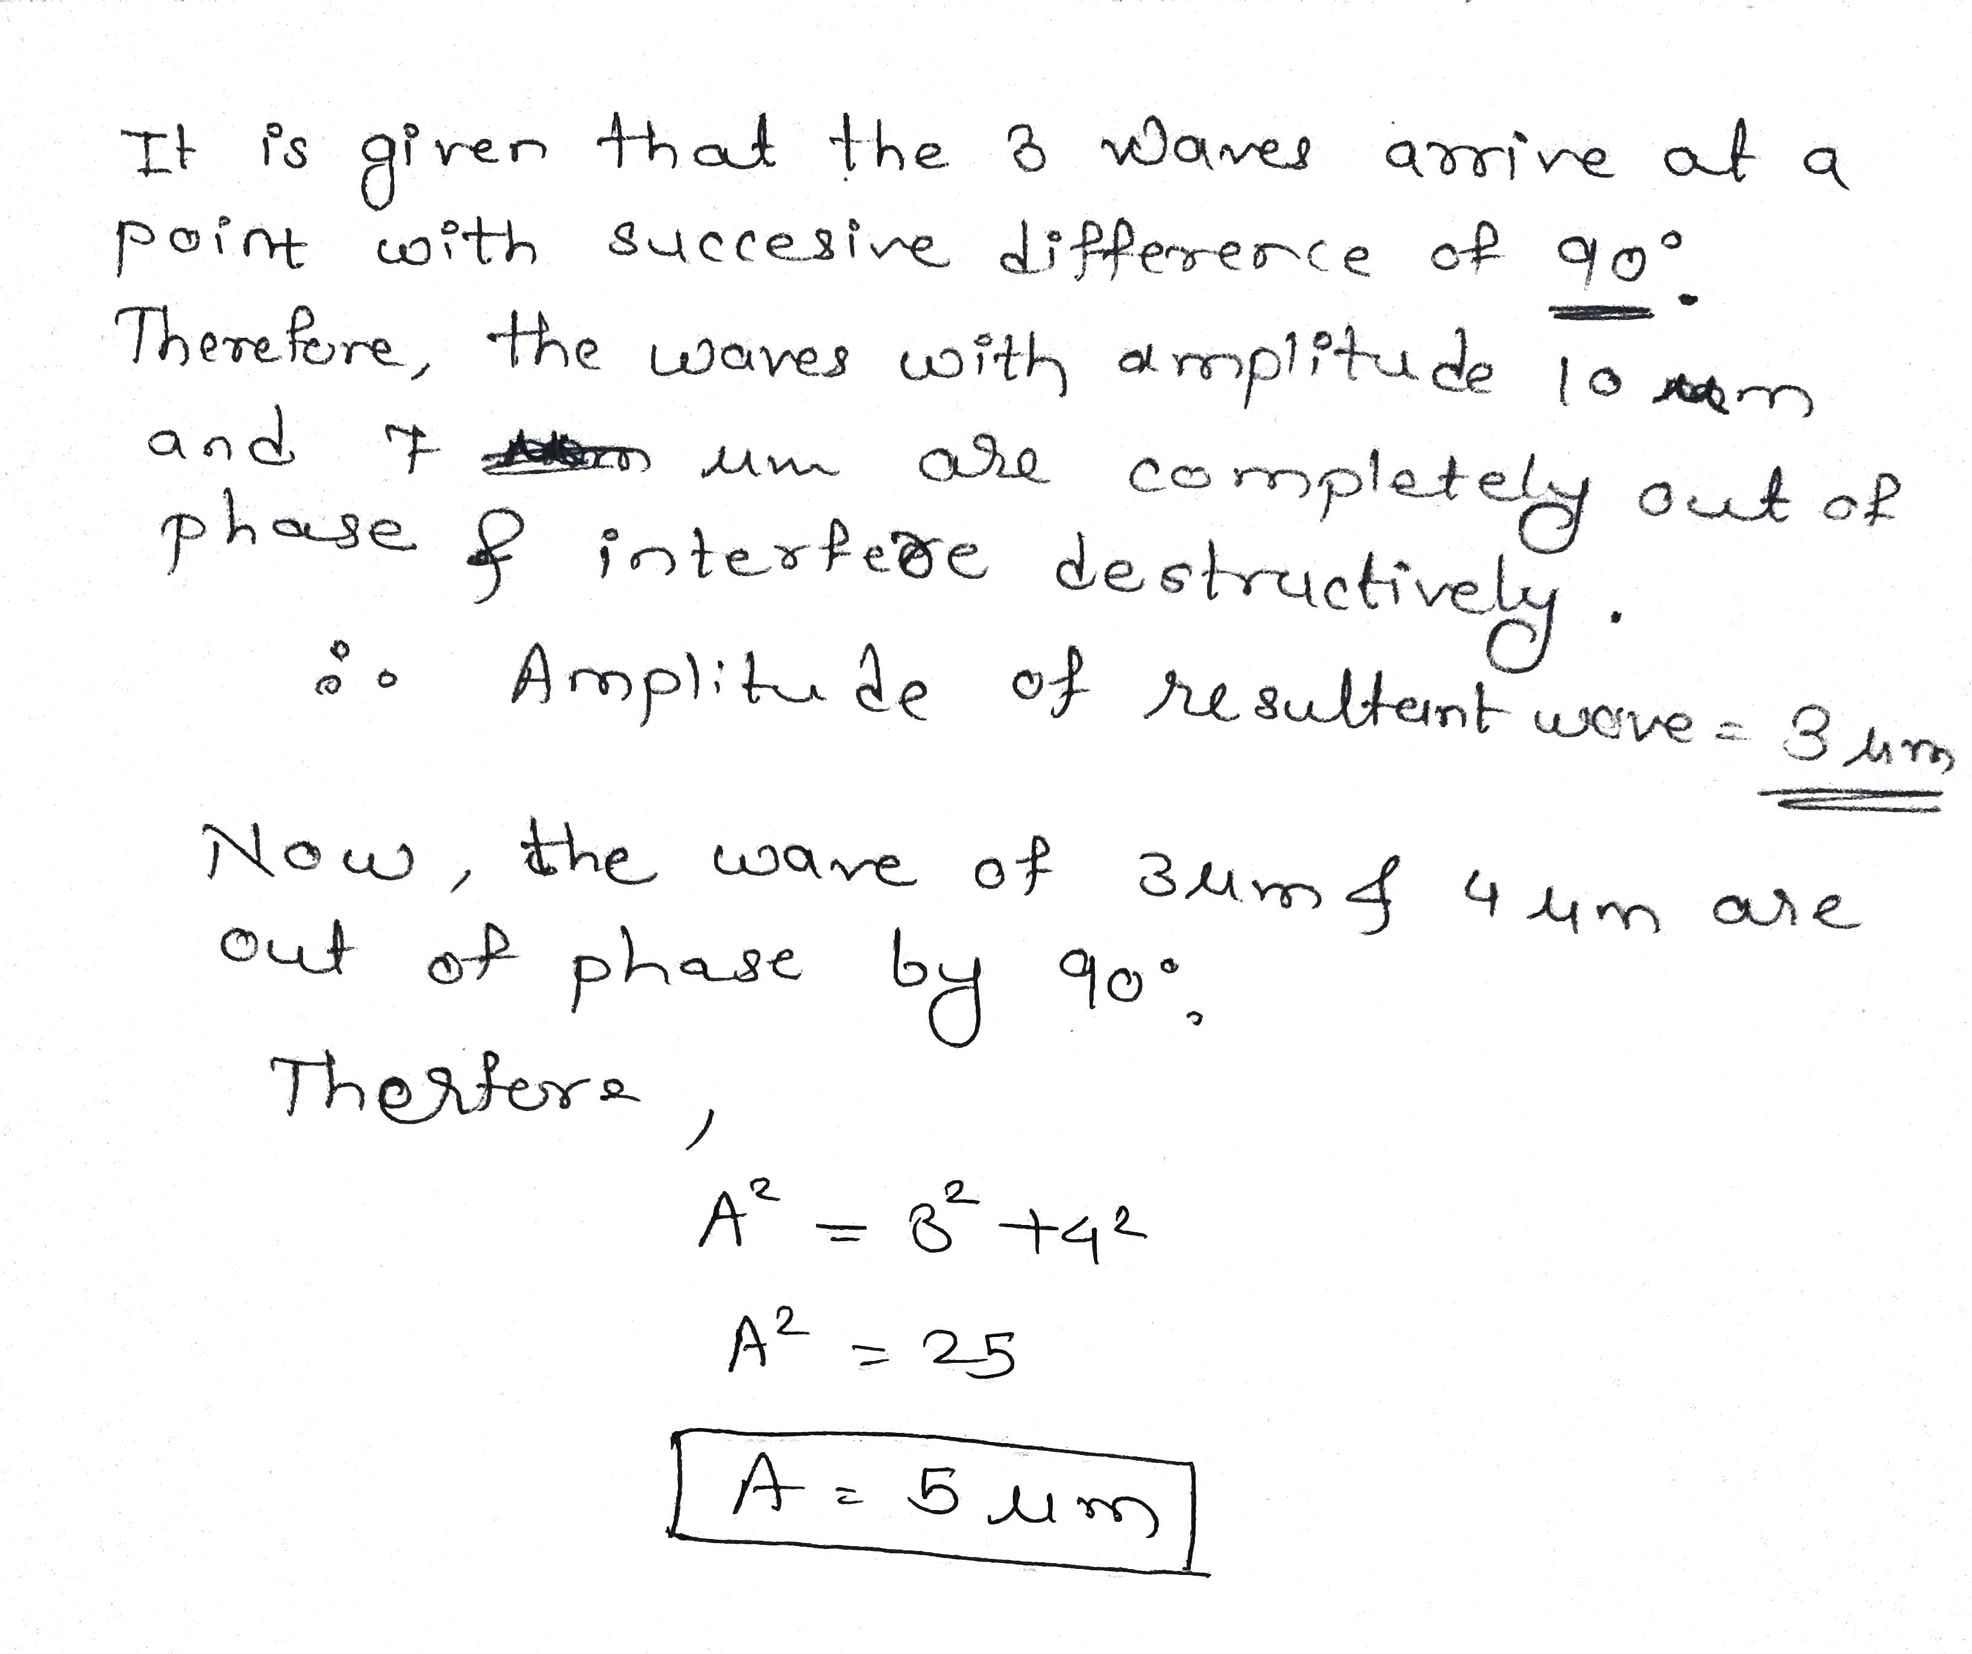 It is given that the 3 waves arrive at a
point with succesive difference of 90°.
Therefore, the waves with amplitude 10 m
and 7 um are completely out of
phase & interfere destructively.
∴ Amplitude of resultant wave = 3 μm
Now, the wave of 3 μm & 4 μm are
out of phase by 90°,
Therfore,
A² = 3² + 4²
A² = 25
A = 5 μm